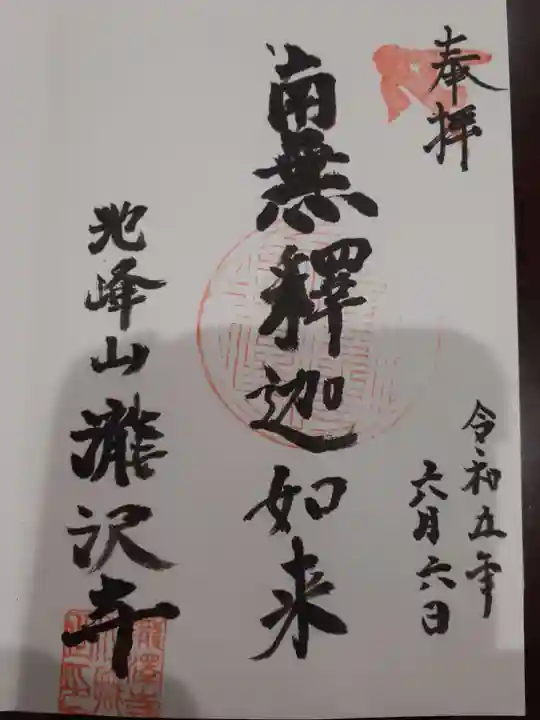 奉拝
令和五年
六月六日
南無釋迦如来
峰山瀧沢寺